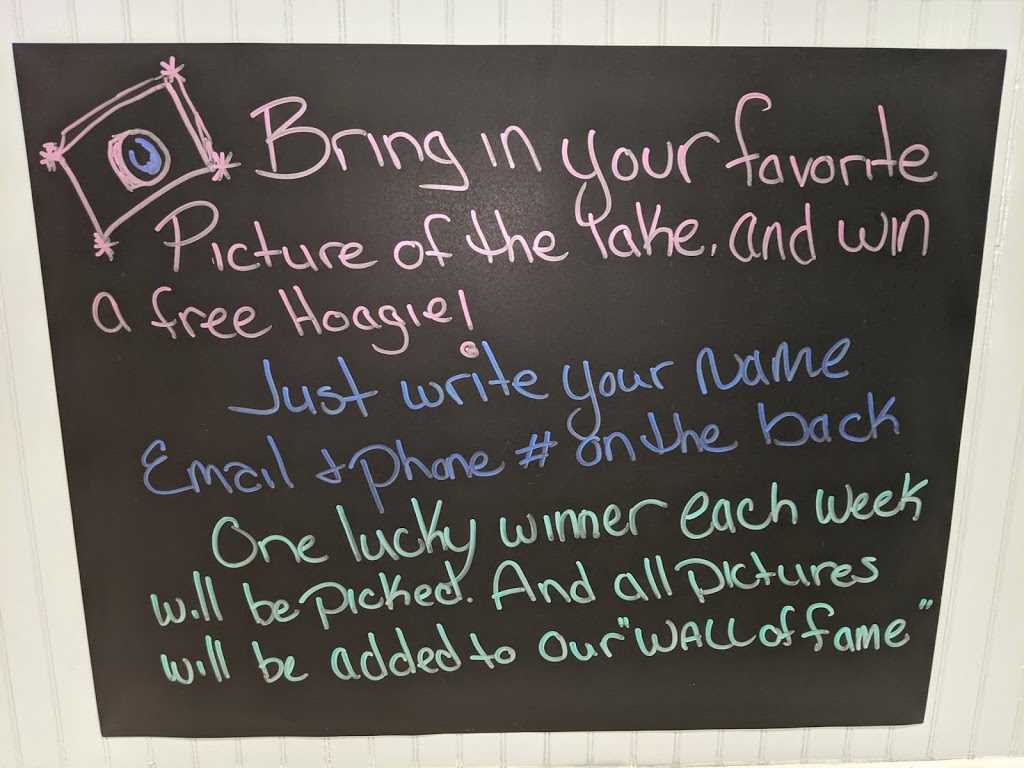 Bring in your favorite
Picture of the lake, and win
a free Hoagie!
Just write your Name
Email + phone # on the back
One lucky winner each week
will be picked. And all pictures
will be added to our "WALL of fame"